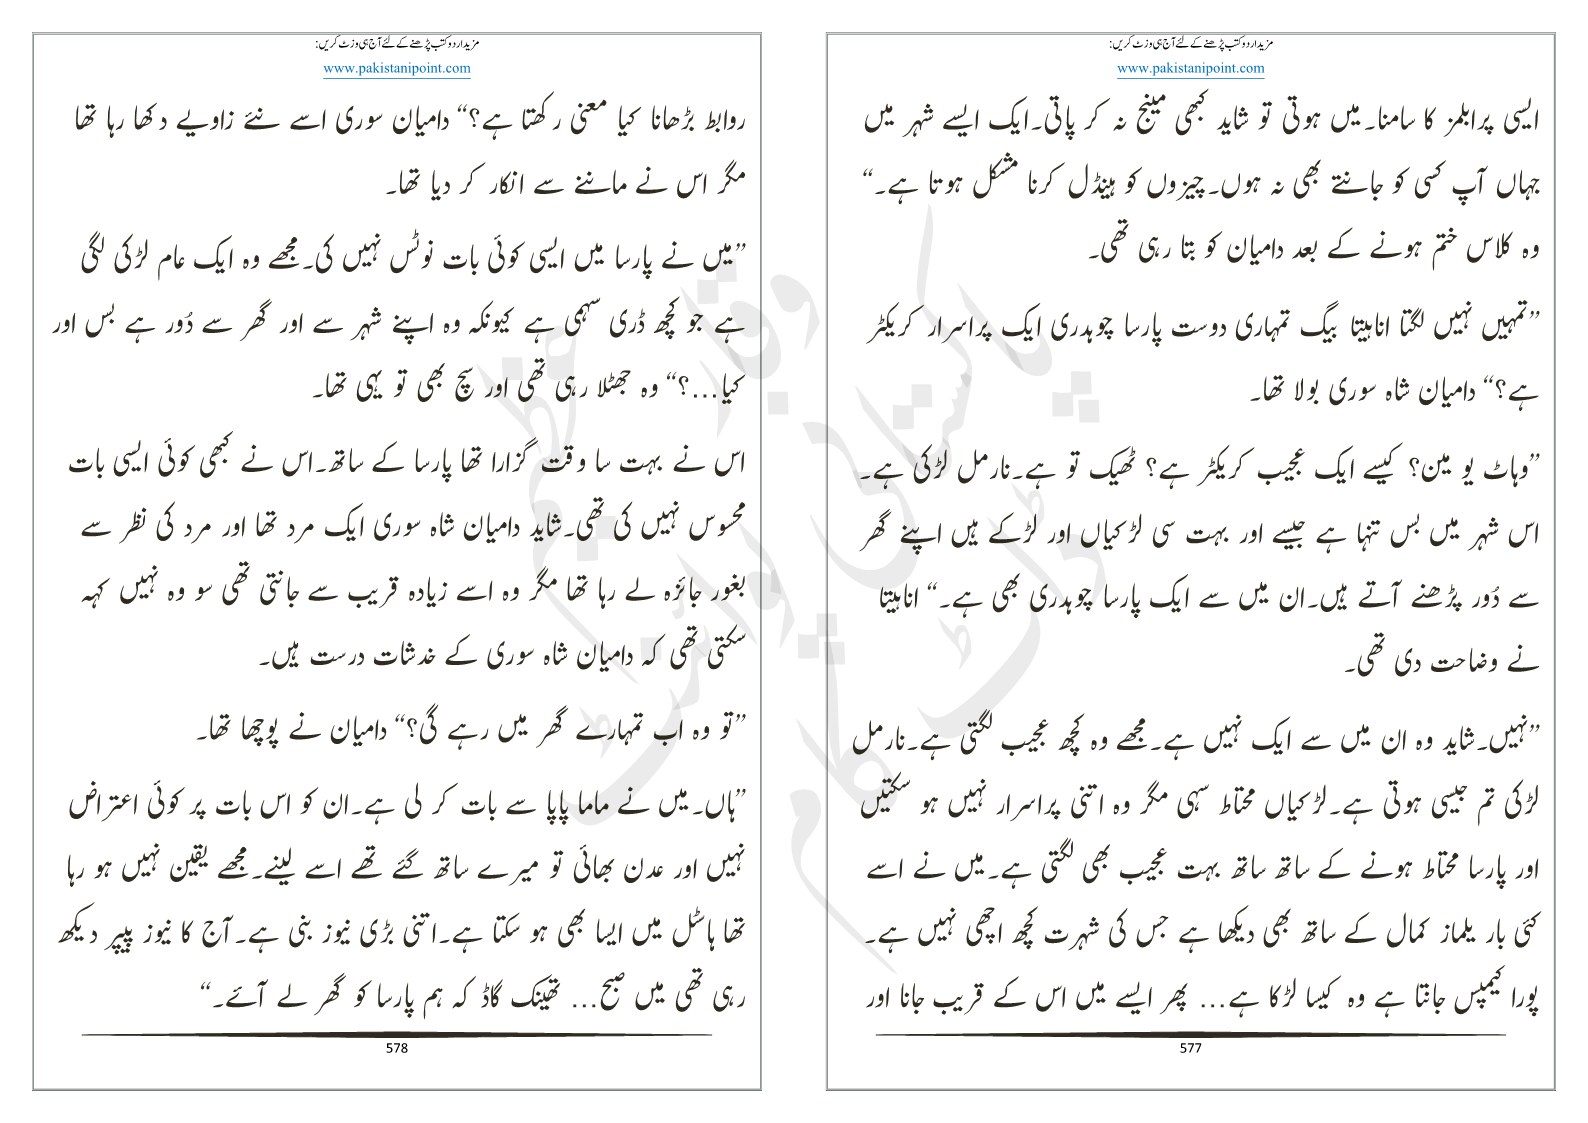 مزید اردو کتب پڑھنے کے لئے آج ہی وزٹ کریں:
www.pakistanipoint.com
ایسی پرابلمز کا سامنا۔میں ہوتی تو شاید کبھی مینج نہ کر پاتی۔ایک ایسے شہر میں
جہاں آپ کسی کو جانتے بھی نہ ہوں۔چیزوں کو ہینڈل کرنا مشکل ہوتا ہے۔“
وہ کلاس ختم ہونے کے بعد دامیان کو بتا رہی تھی۔
”تمہیں نہیں لگتا اناہیتا بیگ تمہاری دوست پارسا چوہدری ایک پراسرار کریکٹر
ہے؟“ دامیان شاہ سوری بولا تھا۔
”وہاٹ یو مین؟ کیسے ایک عجیب کریکٹر ہے؟ ٹھیک تو ہے۔نارمل لڑکی ہے۔
اس شہر میں بس تنہا ہے جیسے اور بہت سی لڑکیاں اور لڑکے ہیں اپنے گھر
سے دُور پڑھنے آتے ہیں۔ان میں سے ایک پارسا چوہدری بھی ہے۔“ اناہیتا
نے وضاحت دی تھی۔
”نہیں۔شاید وہ ان میں سے ایک نہیں ہے۔مجھے وہ کچھ عجیب لگتی ہے۔نارمل
لڑکی تم جیسی ہوتی ہے۔لڑکیاں محتاط سہی مگر وہ اتنی پراسرار نہیں ہو سکتیں
اور پارسا محتاط ہونے کے ساتھ ساتھ بہت عجیب بھی لگتی ہے۔میں نے اسے
کئی بار یلماز کمال کے ساتھ بھی دیکھا ہے جس کی شہرت کچھ اچھی نہیں ہے۔
پورا کیمپس جانتا ہے وہ کیسا لڑکا ہے... پھر ایسے میں اس کے قریب جانا اور
577
مزید اردو کتب پڑھنے کے لئے آج ہی وزٹ کریں:
www.pakistanipoint.com
روابط بڑھانا کیا معنی رکھتا ہے؟“ دامیان سوری اسے نئے زاویے دکھا رہا تھا
مگر اس نے ماننے سے انکار کر دیا تھا۔
”میں نے پارسا میں ایسی کوئی بات نوٹس نہیں کی۔مجھے وہ ایک عام لڑکی لگی
ہے جو کچھ ڈری سہمی ہے کیونکہ وہ اپنے شہر سے اور گھر سے دُور ہے بس اور
کیا...؟“ وہ جھٹلا رہی تھی اور سچ بھی تو یہی تھا۔
اس نے بہت سا وقت گزارا تھا پارسا کے ساتھ۔اس نے کبھی کوئی ایسی بات
محسوس نہیں کی تھی۔شاید دامیان شاہ سوری ایک مرد تھا اور مرد کی نظر سے
بغور جائزہ لے رہا تھا مگر وہ اسے زیادہ قریب سے جانتی تھی سو وہ نہیں کہہ
سکتی تھی کہ دامیان شاہ سوری کے خدشات درست ہیں۔
”تو وہ اب تمہارے گھر میں رہے گی؟“ دامیان نے پوچھا تھا۔
”ہاں۔میں نے ماما پاپا سے بات کر لی ہے۔ان کو اس بات پر کوئی اعتراض
نہیں اور عدن بھائی تو میرے ساتھ گئے تھے اسے لینے۔مجھے یقین نہیں ہو رہا
تھا ہاسٹل میں ایسا بھی ہو سکتا ہے۔اتنی بڑی نیوز بنی ہے۔آج کا نیوز پیپر دیکھ
رہی تھی میں صبح... تھینک گاڈ کہ ہم پارسا کو گھر لے آئے۔“
578